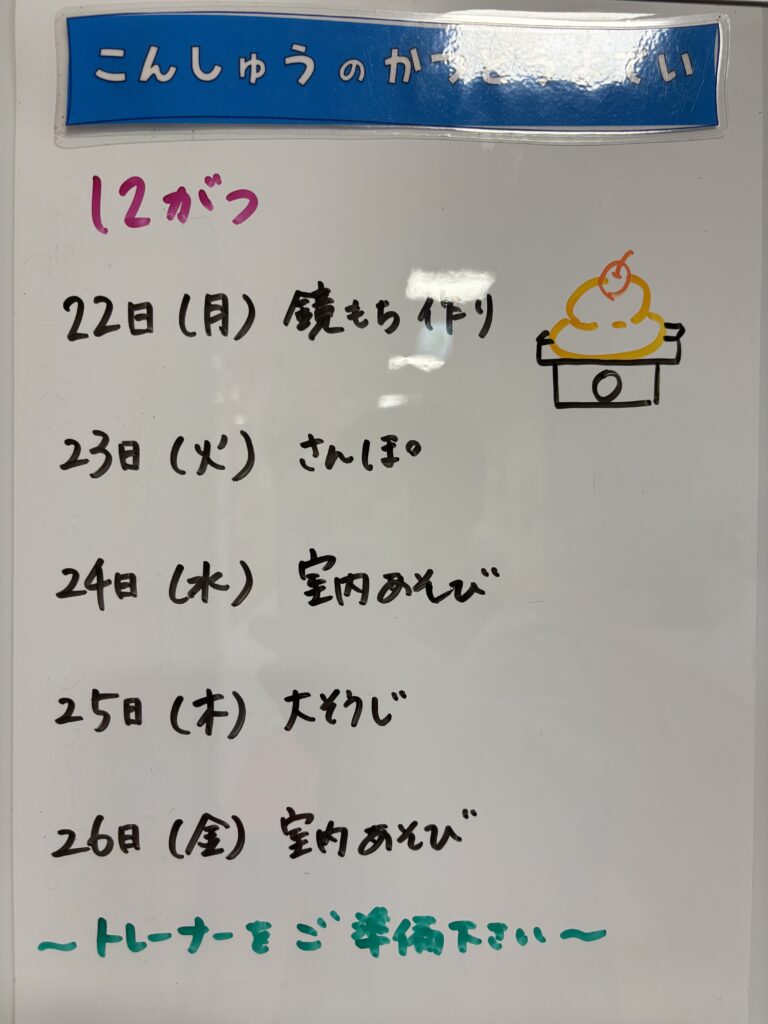 こんしゅうのかつどうよてい
12がつ
22日(月) 鏡もち作り
23日(火) さんぽ
24日(水) 室内あそび
25日(木) 大そうじ
26日(金) 室内あそび
~トレーナーをご準備下さい~